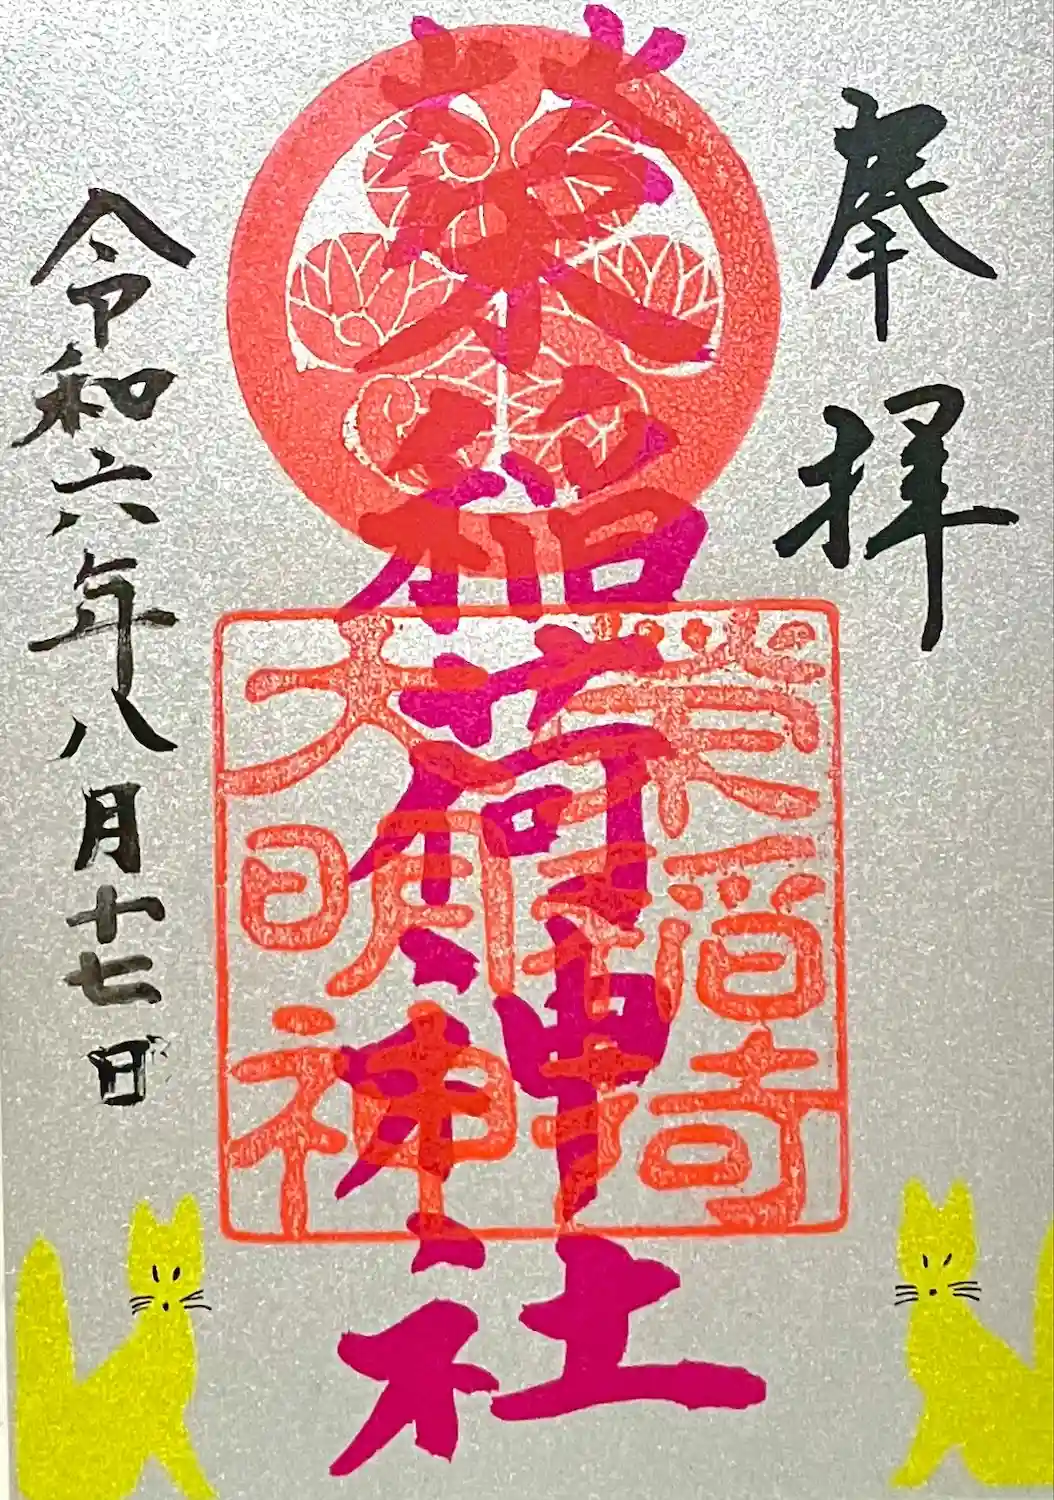 奉拝
榮稲荷神社
榮稲荷
大明神
令和六年八月十七日